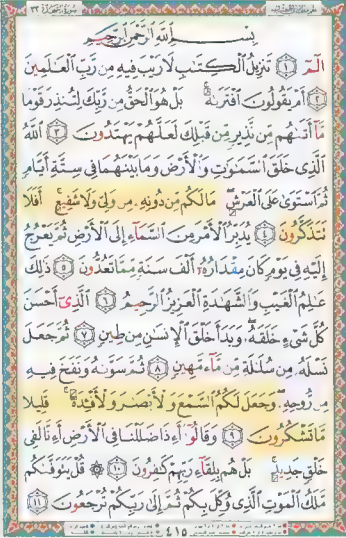 سورة السجدة ٣٢
بِسْمِ اللَّهِ الرَّحْمَٰنِ الرَّحِيمِ
الٓمٓ ﴿١﴾ تَنزِيلُ الْكِتَٰبِ لَا رَيْبَ فِيهِ مِن رَّبِّ الْعَٰلَمِينَ
﴿٢﴾ أَمْ يَقُولُونَ افْتَرَىٰهُ ۚ بَلْ هُوَ الْحَقُّ مِن رَّبِّكَ لِتُنذِرَ قَوْمًا
مَّآ أَتَىٰهُم مِّن نَّذِيرٍ مِّن قَبْلِكَ لَعَلَّهُمْ يَهْتَدُونَ ﴿٣﴾ اللَّهُ
الَّذِى خَلَقَ السَّمَٰوَٰتِ وَالْأَرْضَ وَمَا بَيْنَهُمَا فِى سِتَّةِ أَيَّامٍ
ثُمَّ اسْتَوَىٰ عَلَى الْعَرْشِ ۖ مَا لَكُم مِّن دُونِهِۦ مِن وَلِىٍّ وَلَا شَفِيعٍ ۚ أَفَلَا
تَتَذَكَّرُونَ ﴿٤﴾ يُدَبِّرُ الْأَمْرَ مِنَ السَّمَآءِ إِلَى الْأَرْضِ ثُمَّ يَعْرُجُ
إِلَيْهِ فِى يَوْمٍ كَانَ مِقْدَارُهُۥٓ أَلْفَ سَنَةٍ مِّمَّا تَعُدُّونَ ﴿٥﴾ ذَٰلِكَ
عَٰلِمُ الْغَيْبِ وَالشَّهَٰدَةِ الْعَزِيزُ الرَّحِيمُ ﴿٦﴾ الَّذِىٓ أَحْسَنَ
كُلَّ شَىْءٍ خَلَقَهُۥ ۖ وَبَدَأَ خَلْقَ الْإِنسَٰنِ مِن طِينٍ ﴿٧﴾ ثُمَّ جَعَلَ
نَسْلَهُۥ مِن سُلَٰلَةٍ مِّن مَّآءٍ مَّهِينٍ ﴿٨﴾ ثُمَّ سَوَّىٰهُ وَنَفَخَ فِيهِ
مِن رُّوحِهِۦ ۖ وَجَعَلَ لَكُمُ السَّمْعَ وَالْأَبْصَٰرَ وَالْأَفْـِٔدَةَ ۚ قَلِيلًا
مَّا تَشْكُرُونَ ﴿٩﴾ وَقَالُوٓا۟ أَءِذَا ضَلَلْنَا فِى الْأَرْضِ أَءِنَّا لَفِى
خَلْقٍ جَدِيدٍۭ ۚ بَلْ هُم بِلِقَآءِ رَبِّهِمْ كَٰفِرُونَ ﴿١٠﴾ ۞ قُلْ يَتَوَفَّىٰكُم
مَّلَكُ الْمَوْتِ الَّذِى وُكِّلَ بِكُمْ ثُمَّ إِلَىٰ رَبِّكُمْ تُرْجَعُونَ ﴿١١﴾
٤١٥